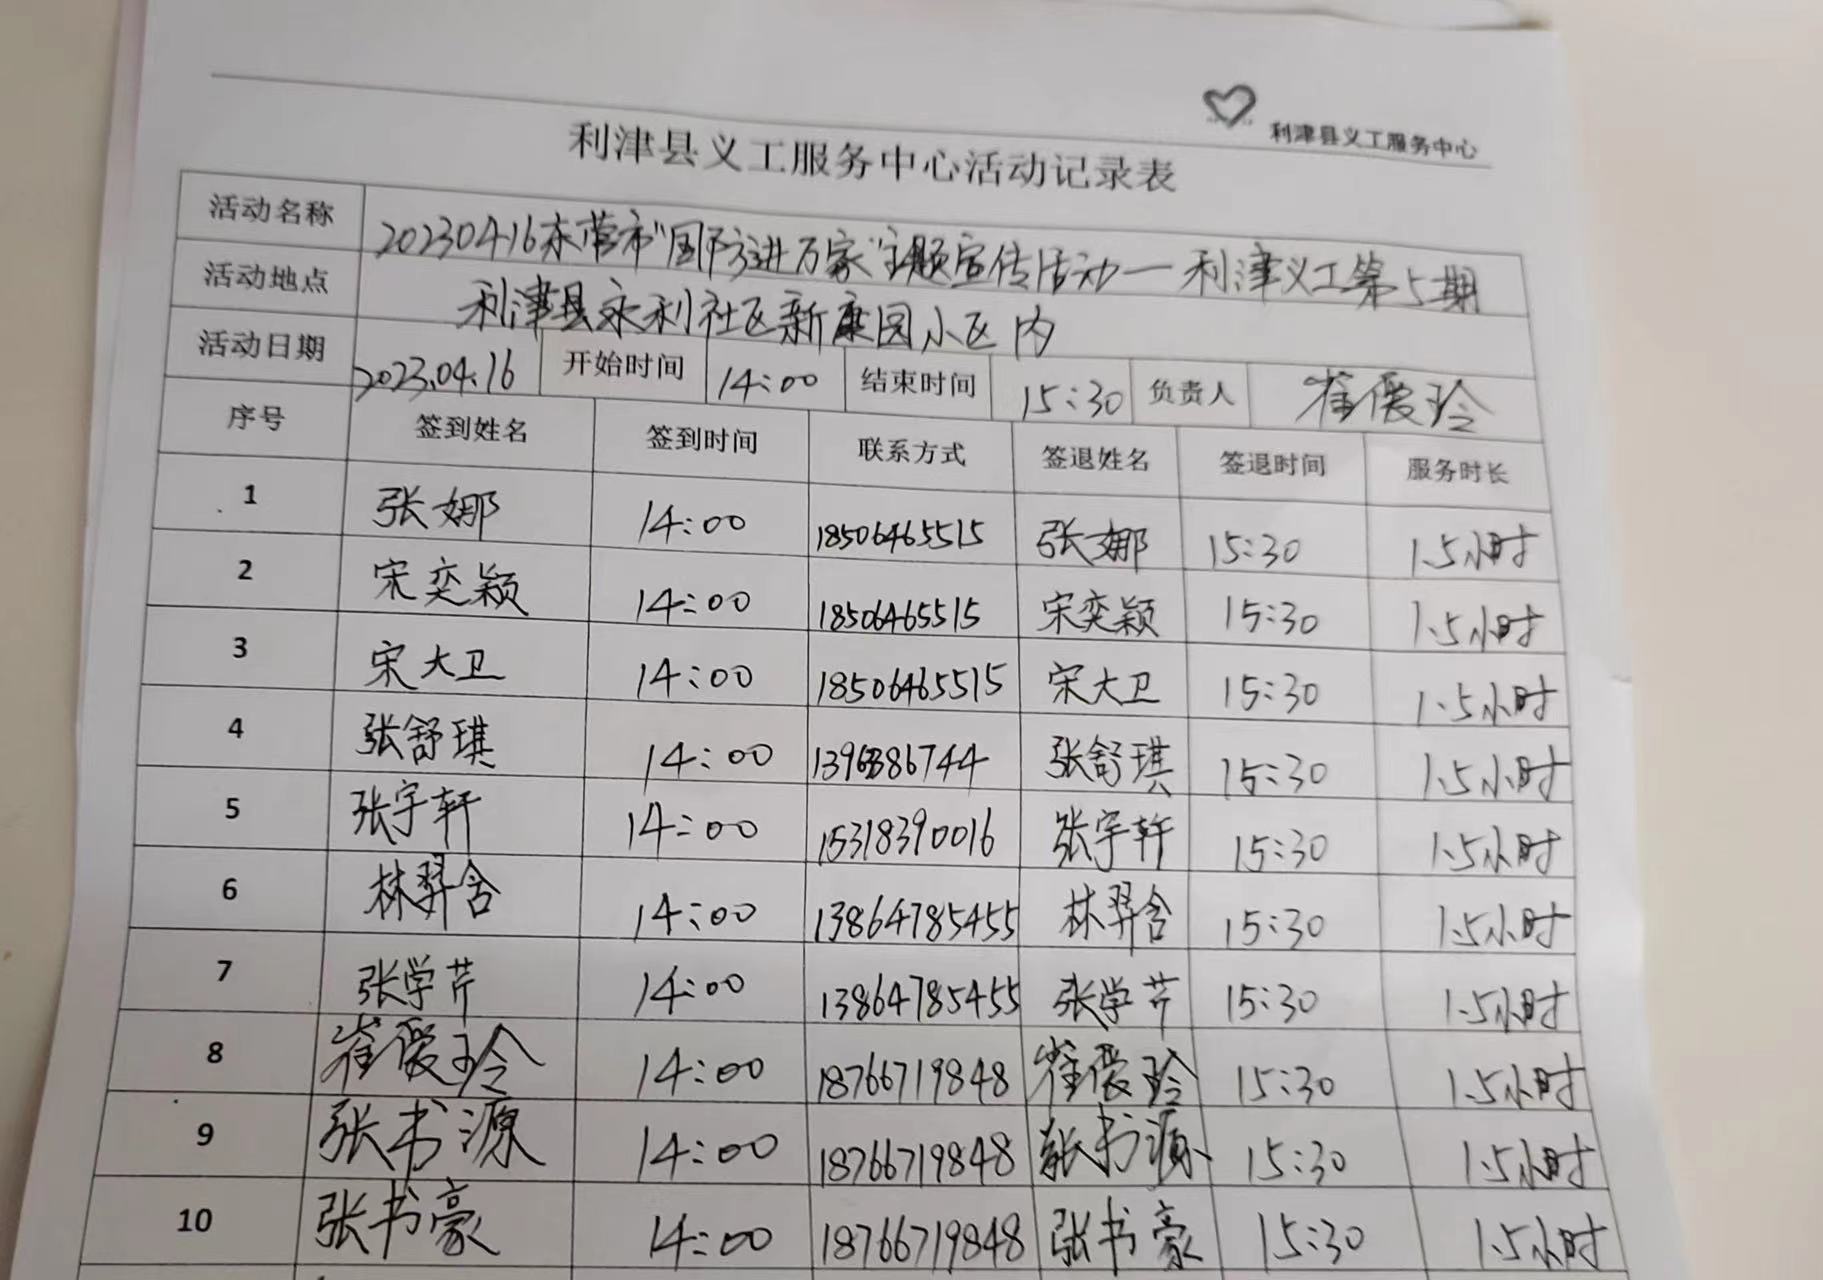 利津县义工服务中心
利津县义工服务中心活动记录表
活动名称 20230416东营市"国防进万家"主题宣传活动—利津义工第5期
活动地点 利津县永利社区新康园小区内
活动日期 2023.04.16 开始时间 14:00 结束时间 15:30 负责人 崔爱玲
序号 签到姓名 签到时间 联系方式 签退姓名 签退时间 服务时长
1 张娜 14:00 18506465515 张娜 15:30 1.5小时
2 宋奕颖 14:00 18506465515 宋奕颖 15:30 1.5小时
3 宋大卫 14:00 18506465515 宋大卫 15:30 1.5小时
4 张舒琪 14:00 张舒琪 15:30 1.5小时
5 张宇轩 14:00 15318390016 张宇轩 15:30 1.5小时
6 林羿含 14:00 13864785455 林羿含 15:30 1.5小时
7 张学芹 14:00 13864785455 张学芹 15:30 1.5小时
8 崔爱玲 14:00 18766719848 崔爱玲 15:30 1.5小时
9 张书源 14:00 18766719848 张书源 15:30 1.5小时
10 张书豪 14:00 18766719848 张书豪 15:30 1.5小时